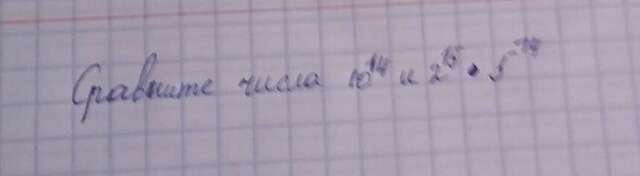 Сравните числа 10¹⁴ и 2¹⁵ · 5⁻¹⁴